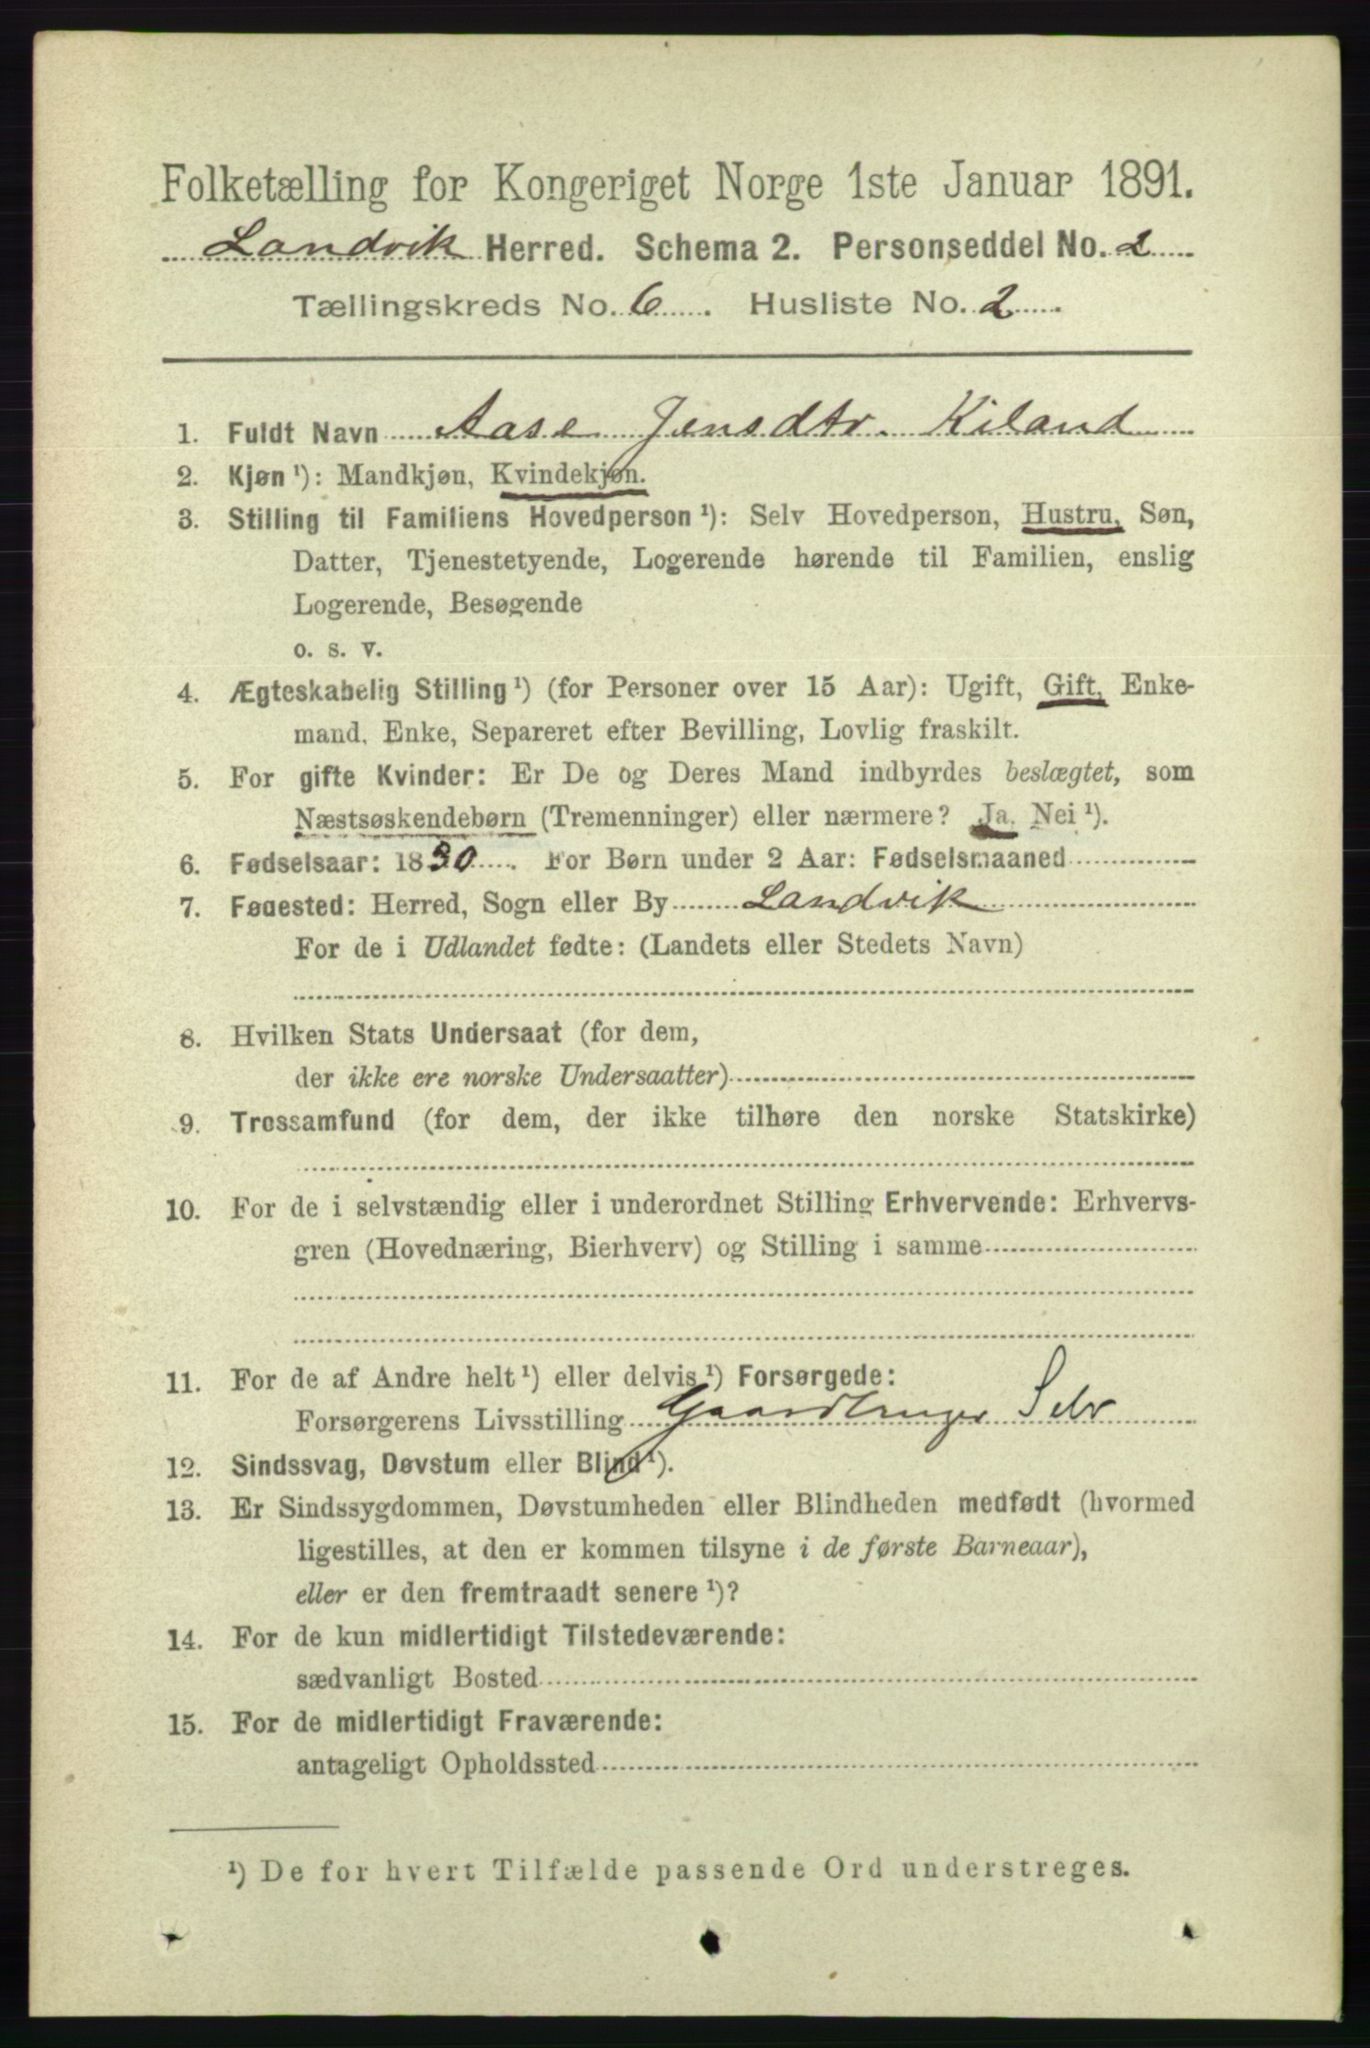 Folketælling for Kongeriget Norge 1ste Januar 1891.
Landvik Herred. Schema 2. Personseddel No. 2
Tællingskreds No. 6. Husliste No. 2.
1. Fuldt Navn Aase Jensdtr. Kiland
2. Kjøn ¹): Mandkjøn, Kvindekjøn.
3. Stilling til Familiens Hovedperson ¹): Selv Hovedperson, Hustru, Søn,
Datter, Tjenestetyende, Logerende hørende til Familien, enslig
Logerende, Besøgende
o. s. v.
4. Ægteskabelig Stilling ¹) (for Personer over 15 Aar): Ugift, Gift, Enke-
mand, Enke, Separeret efter Bevilling, Lovlig fraskilt.
5. For gifte Kvinder: Er De og Deres Mand indbyrdes beslægtet, som
Næstsøskendebørn (Tremenninger) eller nærmere? Ja. Nei ¹).
6. Fødselsaar: 1830. For Børn under 2 Aar: Fødselsmaaned
7. Fødested: Herred, Sogn eller By Landvik
For de i Udlandet fødte: (Landets eller Stedets Navn)
8. Hvilken Stats Undersaat (for dem,
der ikke ere norske Undersaatter)
9. Trossamfund (for dem, der ikke tilhøre den norske Statskirke)
10. For de i selvstændig eller i underordnet Stilling Erhvervende: Erhvervs-
gren (Hovednæring, Bierhverv) og Stilling i samme
11. For de af Andre helt ¹) eller delvis ¹) Forsørgede:
Forsørgerens Livsstilling Gaardbruger Selv
12. Sindssvag, Døvstum eller Blind ¹).
13. Er Sindssygdommen, Døvstumheden eller Blindheden medfødt (hvormed
ligestilles, at den er kommen tilsyne i de første Barneaar),
eller er den fremtraadt senere ¹)?
14. For de kun midlertidigt Tilstedeværende:
sædvanligt Bosted
15. For de midlertidigt Fraværende:
antageligt Opholdssted
¹) De for hvert Tilfælde passende Ord understreges.